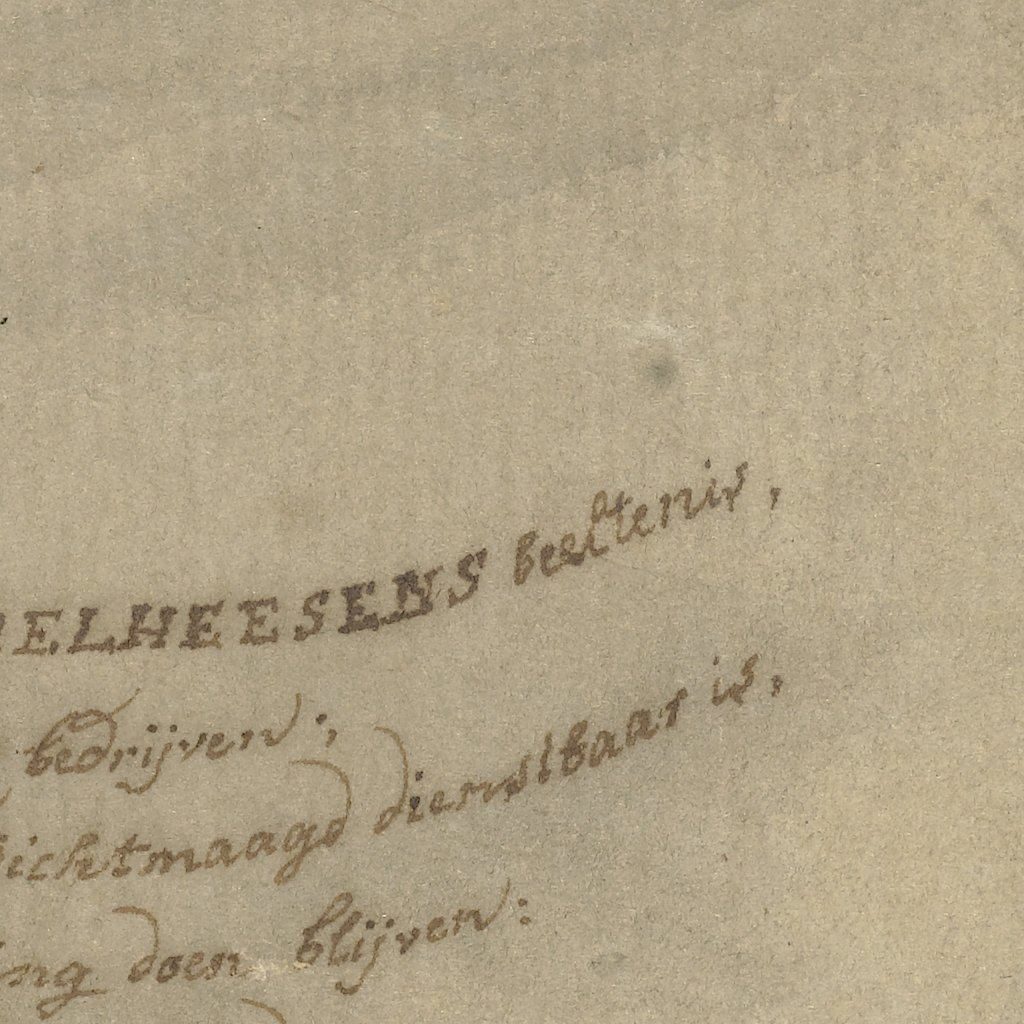 ELHEESENS beeltenis,
bedrijven;
dichtmaagd dienstbaar is,
doen blijven: